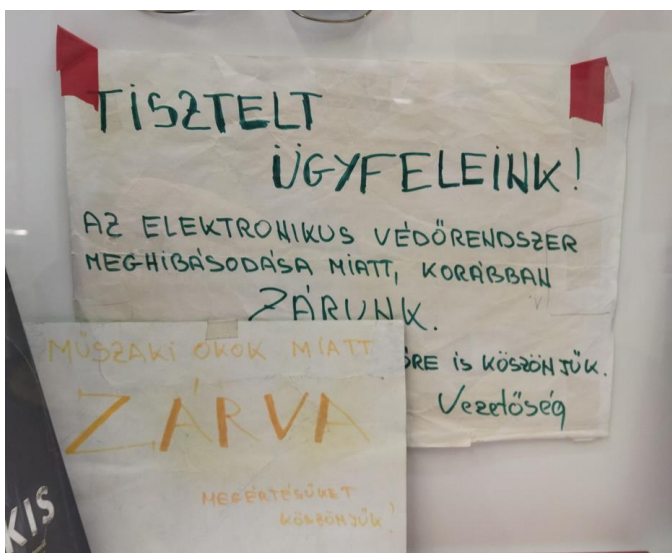 TISZTELT
ÜGYFELEINK!
AZ ELEKTRONIKUS VÉDŐRENDSZER
MEGHIBÁSODÁSA MIATT, KORÁBBAN
ZÁRUNK.
ŐRE IS KÖSZÖNJÜK.
Vezetőség
MŰSZAKI OKOK MIATT
ZÁRVA
MEGÉRTÉSÜKET
KÖSZÖNJÜK!
KIS